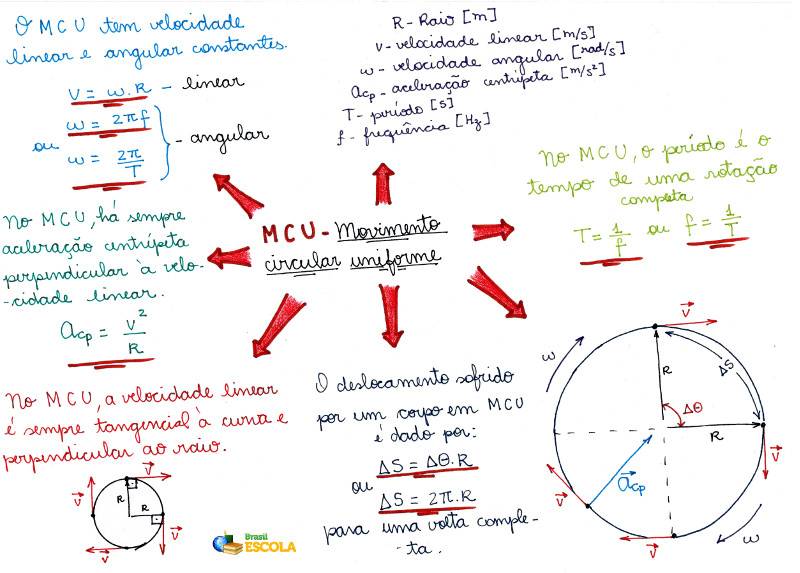 O MCU tem velocidade
linear e angular constantes.
V = ω.R - linear
ou
ω = 2πf
ω = 2π/T
- angular
R - Raio [m]
v - velocidade linear [m/s]
ω - velocidade angular [rad/s]
acp - aceleração centrípeta [m/s²]
T - período [s]
f - frequência [Hz]
No MCU, o período é o
tempo de uma rotação
completa
T = 1/f ou f = 1/T
MCU - Movimento
circular uniforme
No MCU, há sempre
aceleração centrípeta
perpendicular à velo-
-cidade linear.
acp = V²/R
No MCU, a velocidade linear
é sempre tangencial à curva e
perpendicular ao raio.
v
v
R
R
v
v
O deslocamento sofrido
por um corpo em MCU
é dado por:
ΔS = Δθ.R
ou
ΔS = 2π.R
para uma volta comple-
-ta.
v
ω
R
ΔS
Δθ
R
v
acp
v
v
ω
Brasil
ESCOLA